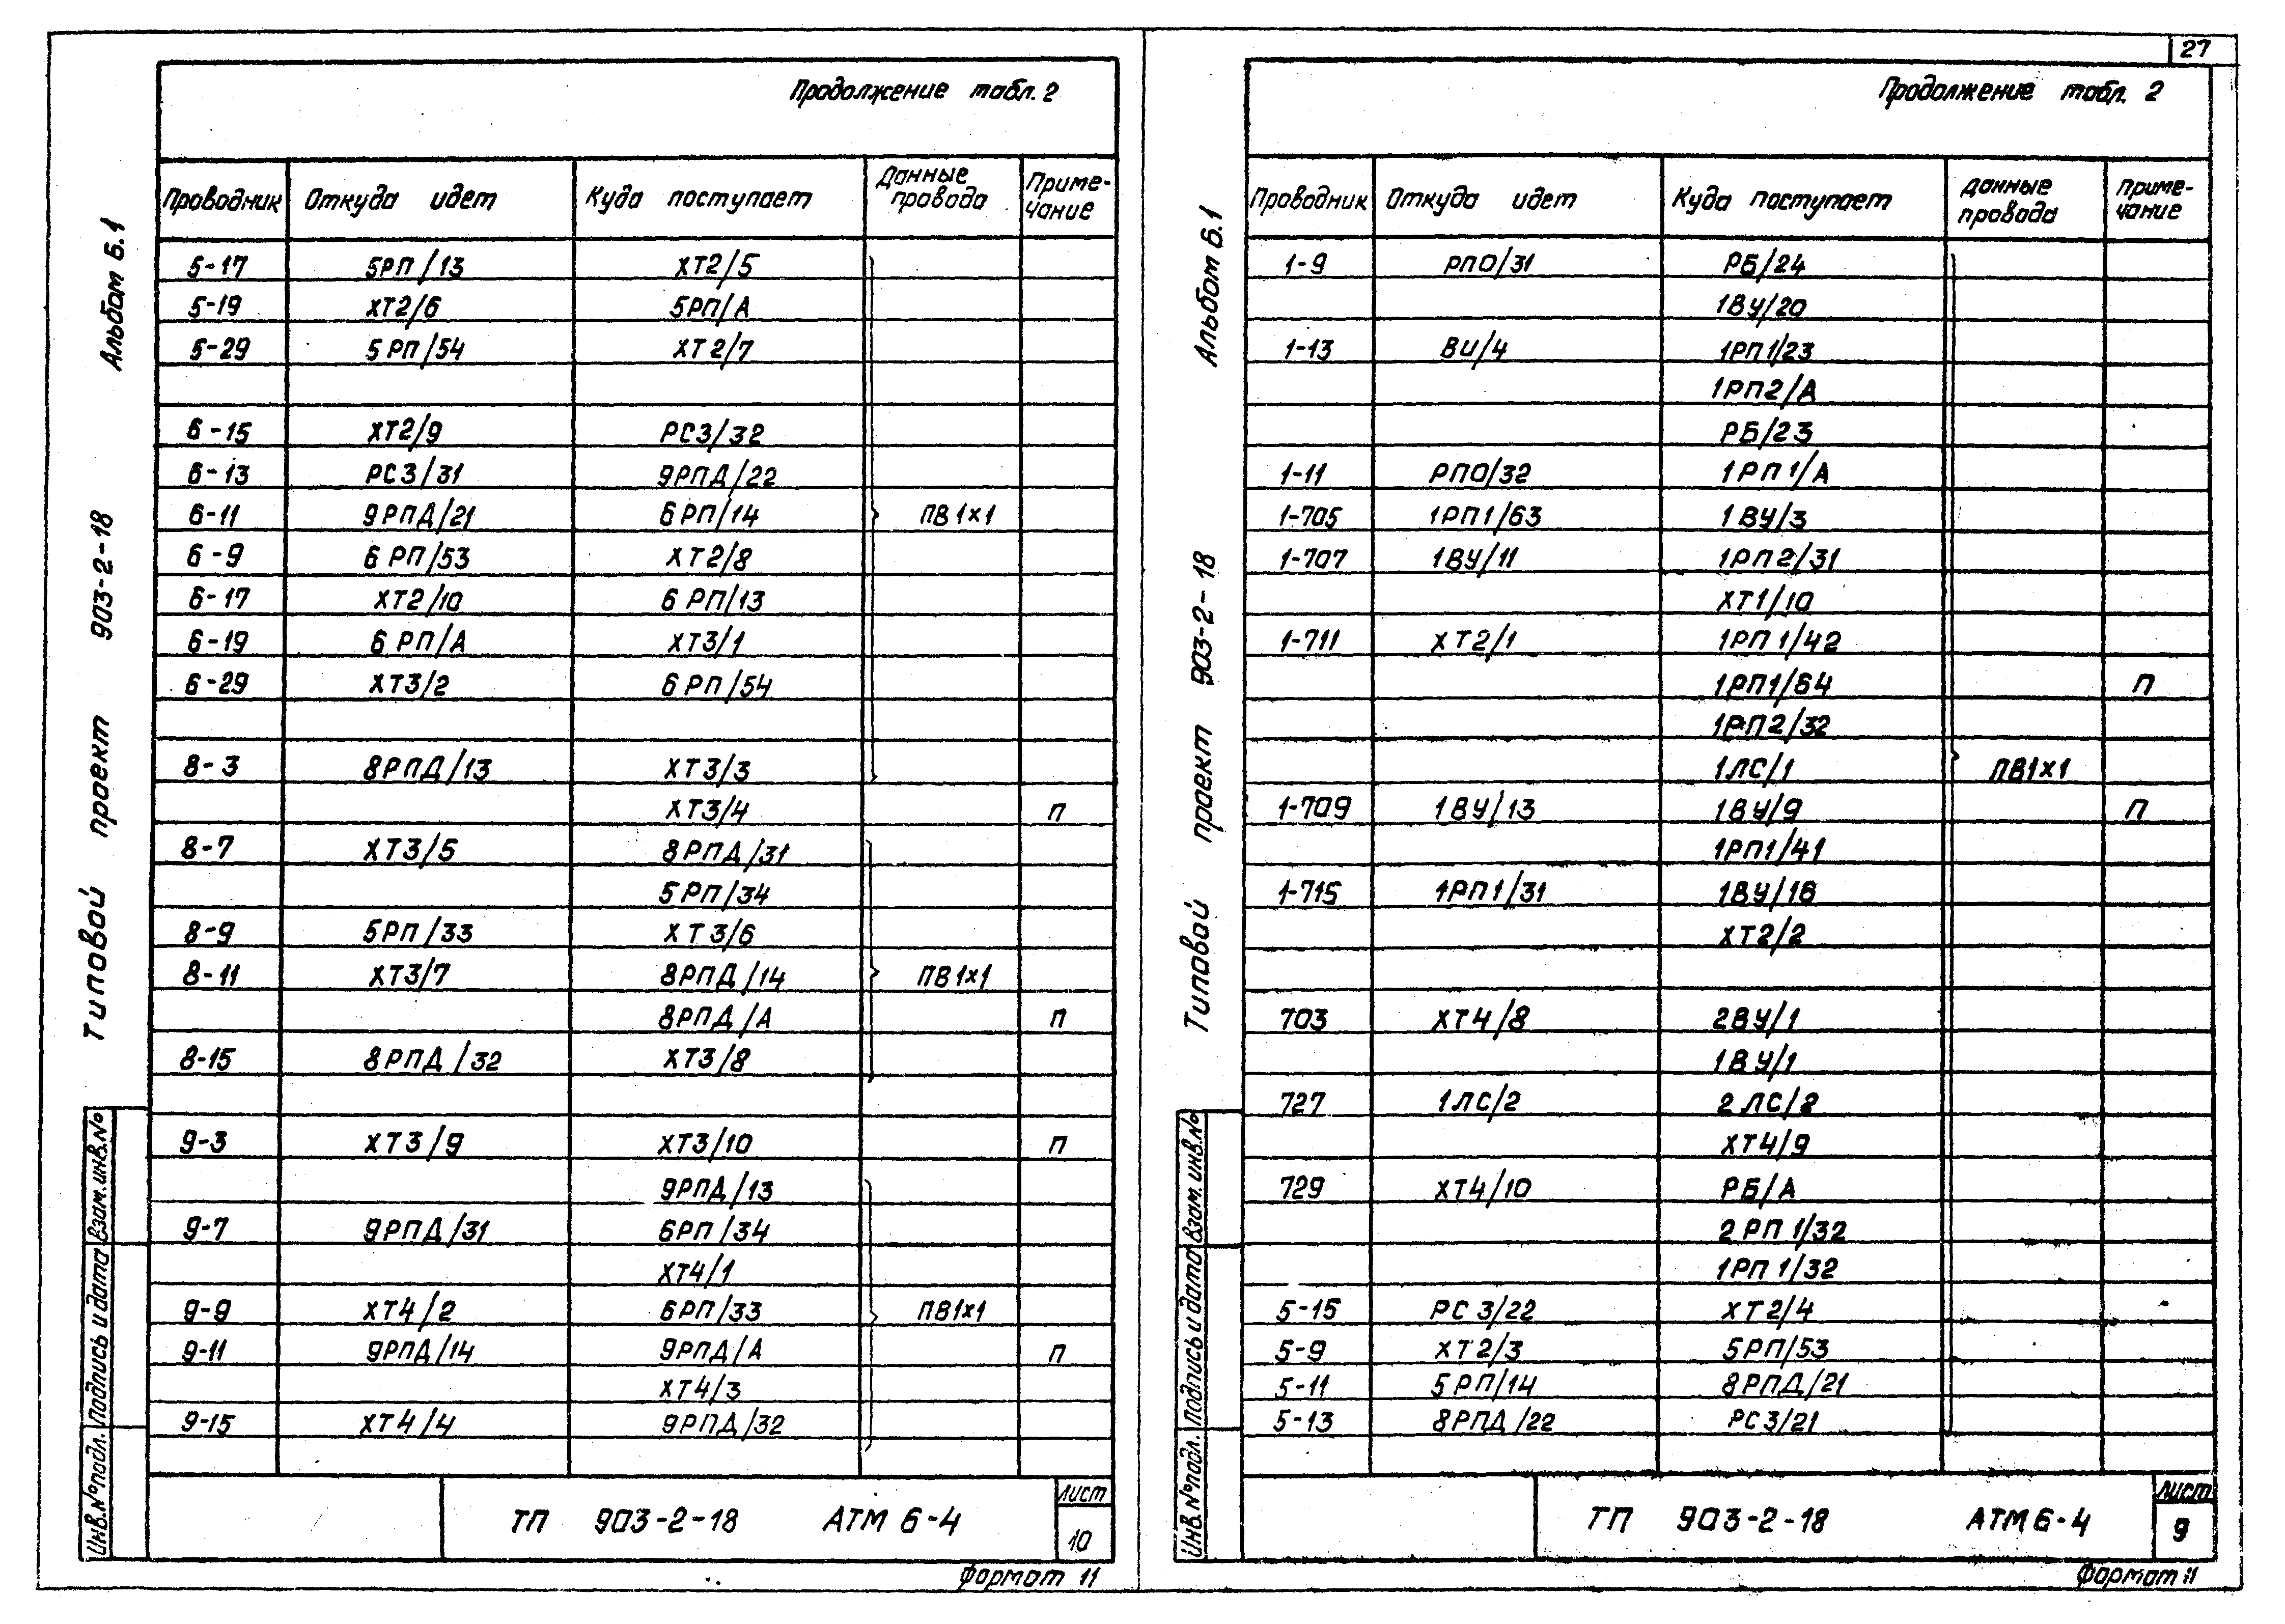 27
Продолжение табл. 2
Проводник Откуда идет Куда поступает Данные провода Приме-чание
5-17 5РП/13 ХТ2/5
5-19 ХТ2/6 5РП/А
5-29 5РП/54 ХТ2/7
6-15 ХТ2/9 РС3/32
6-13 РС3/31 9РПД/22
6-11 9РПД/21 6РП/14 ПВ1×1
6-9 6РП/53 ХТ2/8
6-17 ХТ2/10 6РП/13
6-19 6РП/А ХТ3/1
6-29 ХТ3/2 6РП/54
8-3 8РПД/13 ХТ3/3
ХТ3/4 П
8-7 ХТ3/5 8РПД/31
5РП/34
8-9 5РП/33 ХТ3/6
8-11 ХТ3/7 8РПД/14 ПВ1×1
8РПД/А П
8-15 8РПД/32 ХТ3/8
9-3 ХТ3/9 ХТ3/10 П
9РПД/13
9-7 9РПД/31 6РП/34
ХТ4/1
9-9 ХТ4/2 6РП/33 ПВ1×1
9-11 9РПД/14 9РПД/А П
ХТ4/3
9-15 ХТ4/4 9РПД/32
ТП 903-2-18 АТМ 6-4
Лист
10
Формат 11
Типовой проект 903-2-18 Альбом 6.1
Инв.№подл. Подпись и дата Взам.инв.№
Продолжение табл. 2
Проводник Откуда идет Куда поступает Данные провода Приме-чание
1-9 РПО/31 РБ/24
1ВУ/20
1-13 ВИ/4 1РП1/23
1РП2/А
РБ/23
1-11 РПО/32 1РП1/А
1-705 1РП1/63 1ВУ/3
1-707 1ВУ/11 1РП2/31
ХТ1/10
1-711 ХТ2/1 1РП1/42
1РП1/64 П
1РП2/32
1ЛС/1 ПВ1×1
1-709 1ВУ/13 1ВУ/9 П
1РП1/41
1-715 1РП1/31 1ВУ/16
ХТ2/2
703 ХТ4/8 2ВУ/1
1ВУ/1
727 1ЛС/2 2ЛС/2
ХТ4/9
729 ХТ4/10 РБ/А
2РП1/32
1РП1/32
5-15 РС3/22 ХТ2/4
5-9 ХТ2/3 5РП/53
5-11 5РП/14 8РПД/21
5-13 8РПД/22 РС3/21
ТП 903-2-18 АТМ 6-4
Лист
9
Формат 11
Типовой проект 903-2-18 Альбом 6.1
Инв.№подл. Подпись и дата Взам.инв.№